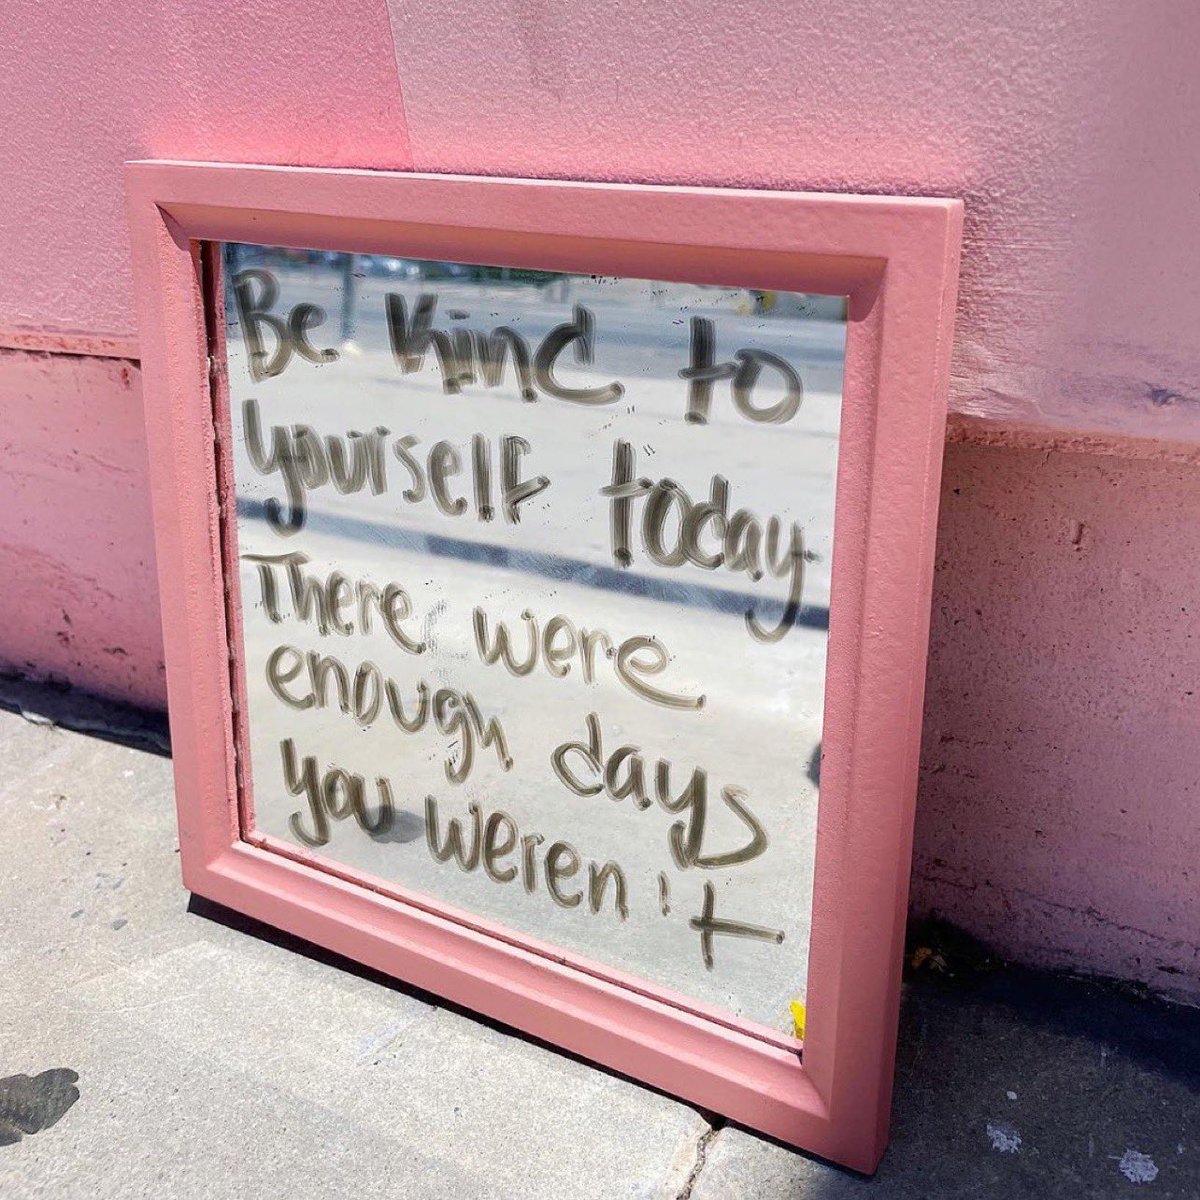 Be kind to
yourself today
There were
enough days
you weren't